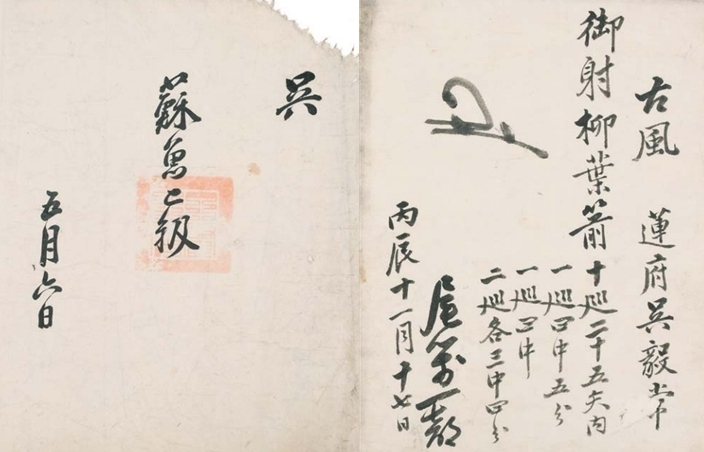 古風 蓮府吳毅常
御射柳葉箭十巡二十五矢内
一巡四中五分
一巡四中
二巡各三中四分
丙辰十一月十七日
吳
蘇魚二級
五月六日